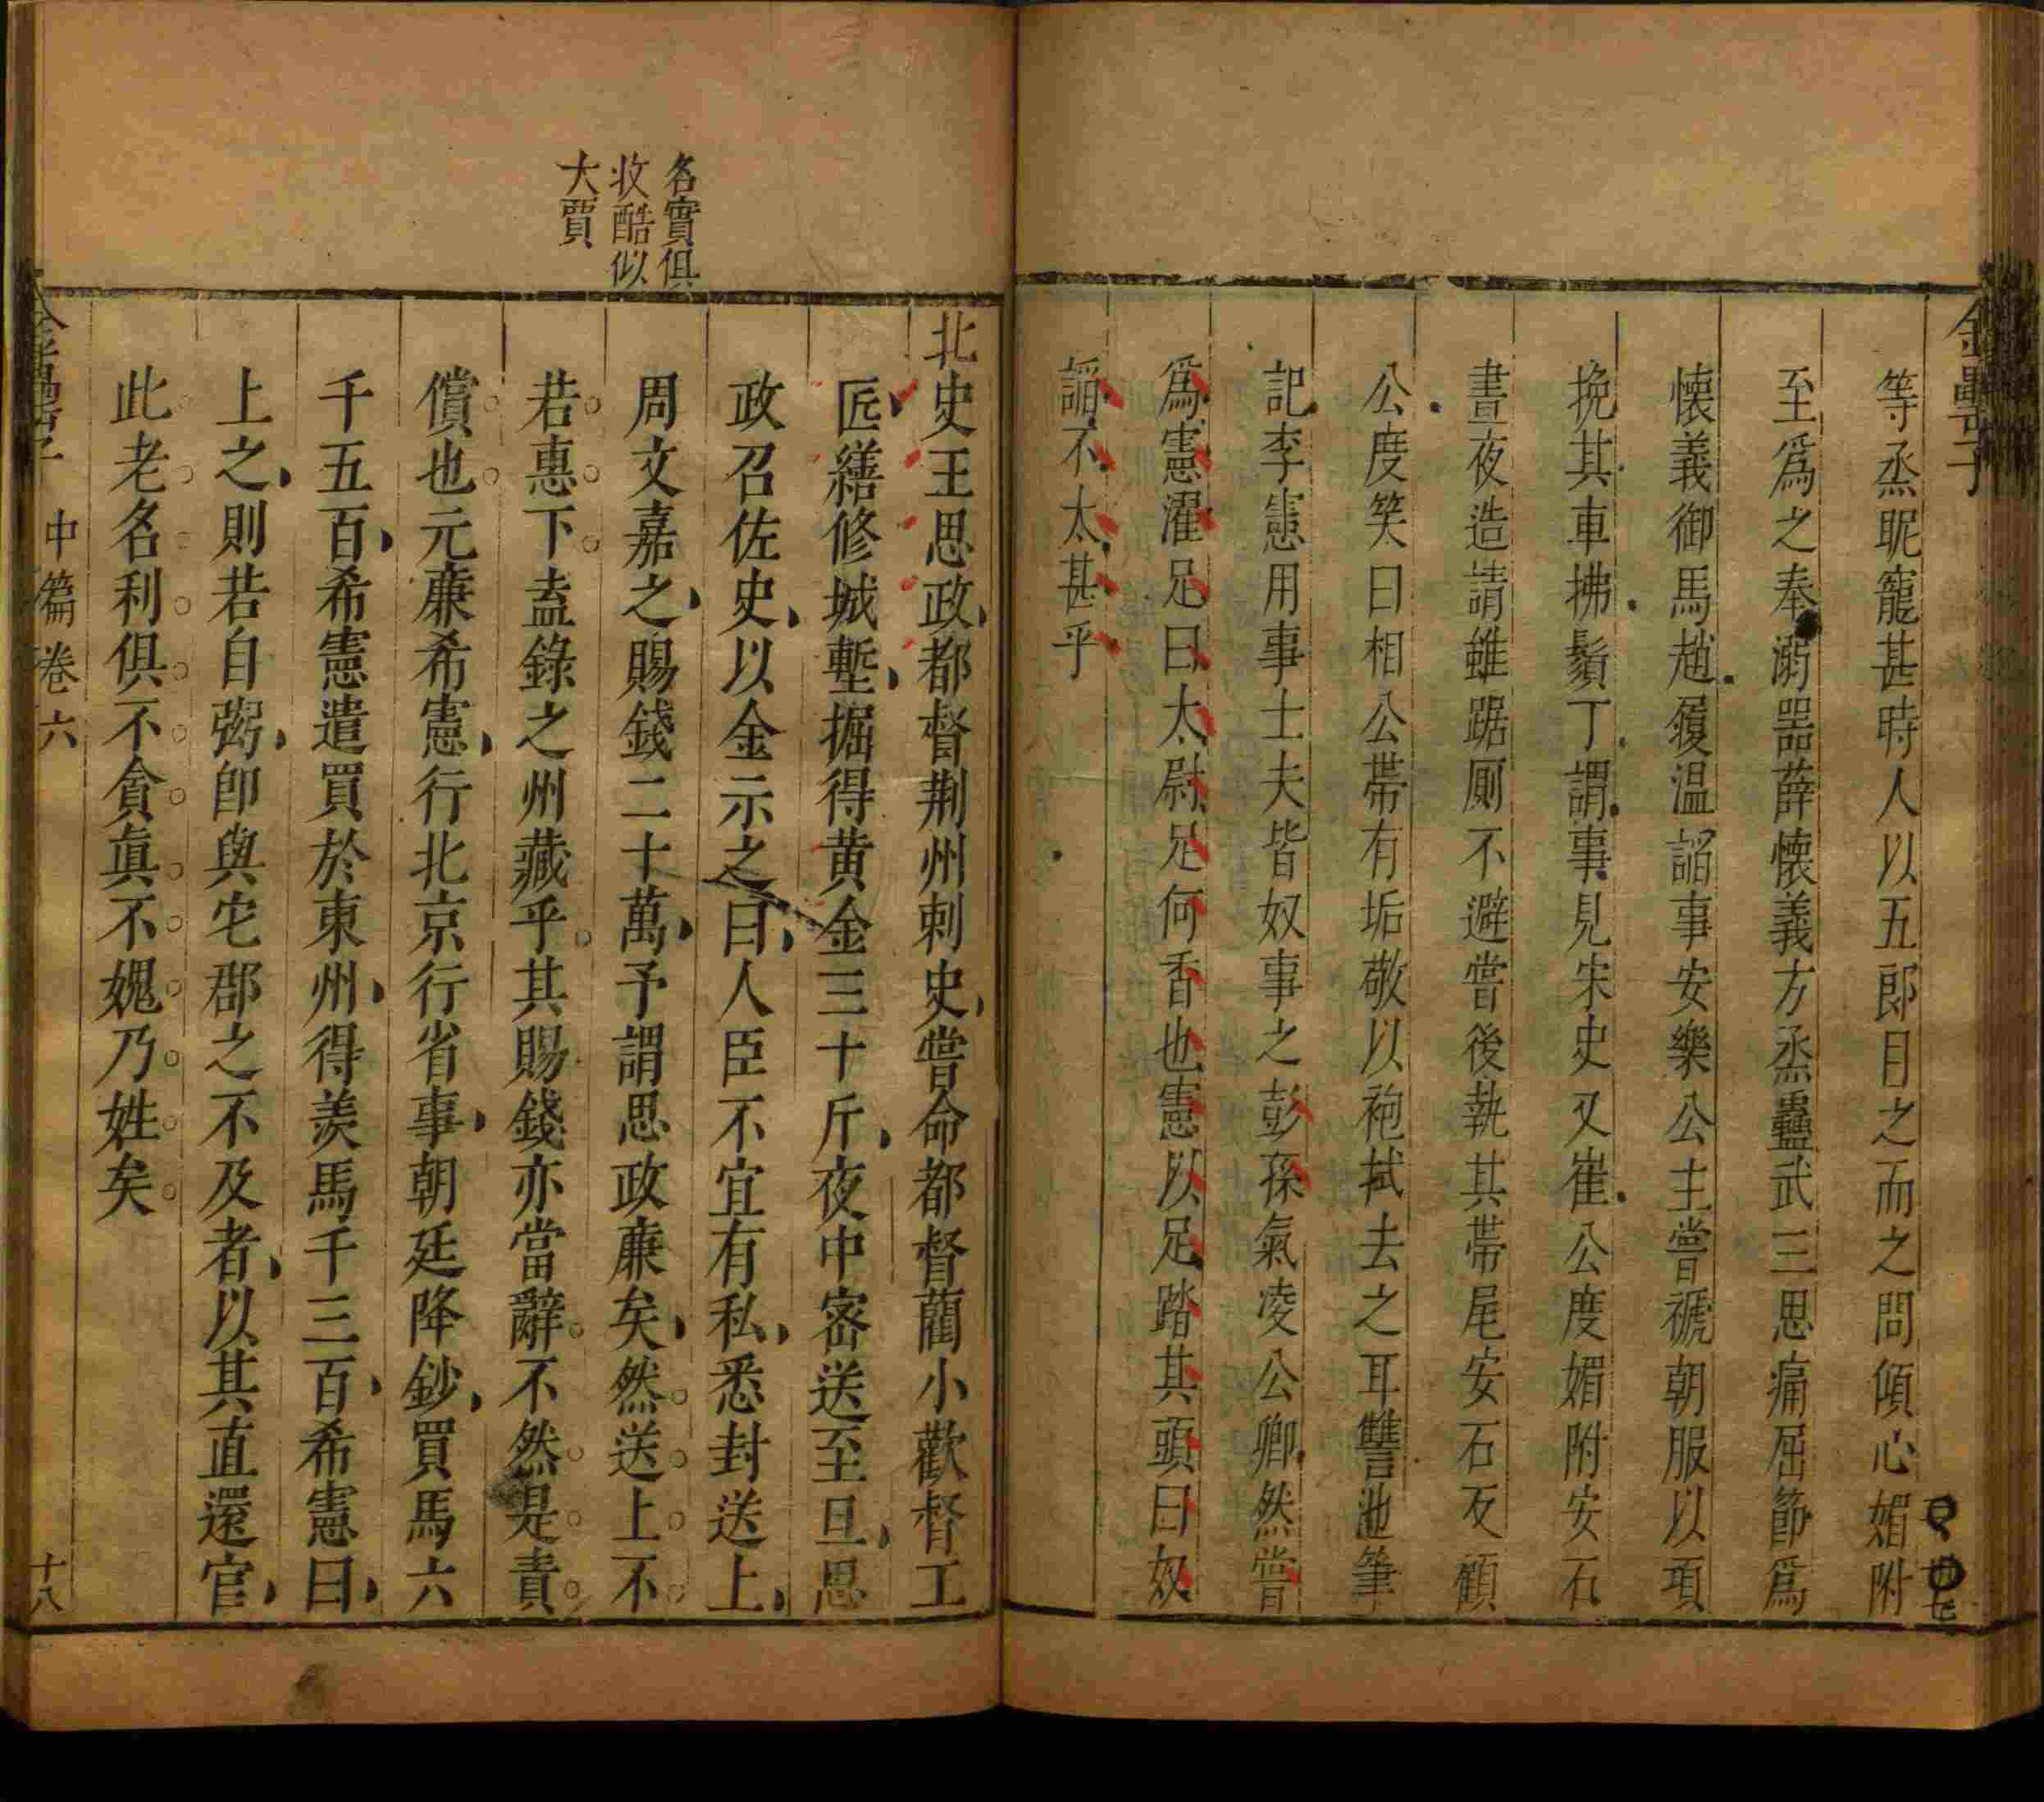 金罍子
等烝昵寵甚時人以五郎目之而之問傾心媚附
至爲之奉溺器薛懷義方烝蠱武三思痛屈節爲
懷義御馬趙履温謟事安樂公主嘗褫朝服以項
挽其車拂鬚丁謂事見宋史又崔公度媚附安石
晝夜造請雖踞厠不避嘗後執其帶尾安石反顧
公度笑曰相公帶有垢敬以袍拭去之耳讐池筆
記李憲用事士夫皆奴事之彭孫氣凌公卿然嘗
爲憲濯足曰太尉足何香也憲以足踏其頭曰奴
謟不太甚乎
名實俱
收酷似
大賈
北史王思政都督荆州刺史嘗命都督藺小歡督工
匠繕修城塹掘得黄金三十斤夜中密送至旦思
政召佐史以金示之曰人臣不宜有私悉封送上
周文嘉之賜錢二十萬予謂思政廉矣然送上不
若惠下盍錄之州藏乎其賜錢亦當辭不然是責
償也元廉希憲行北京行省事朝廷降鈔買馬六
千五百希憲遣買於東州得羨馬千三百希憲曰
上之則若自鬻卽與宅郡之不及者以其直還官
此老名利俱不貪眞不媿乃姓矣
金罍子 中篇卷六 十八